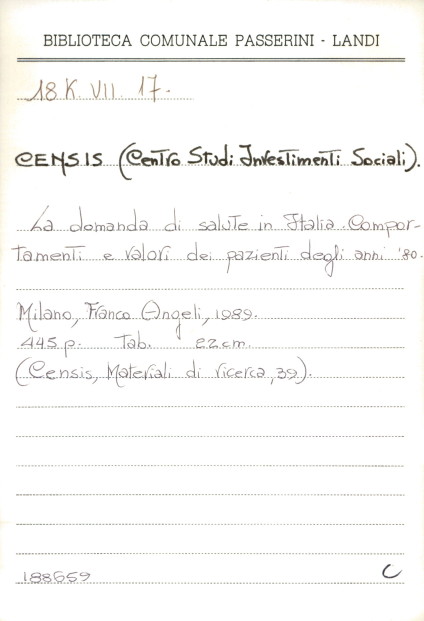 BIBLIOTECA COMUNALE PASSERINI - LANDI
18 K. VII. 17.
CENSIS (Centro Studi Investimenti Sociali).
La domanda di salute in Italia. Compor-
tamenti e valori dei pazienti degli anni '80.
Milano, Franco Angeli, 1989.
445 p. Tab. 22 cm.
(Censis, Materiali di ricerca, 39).
188659 C